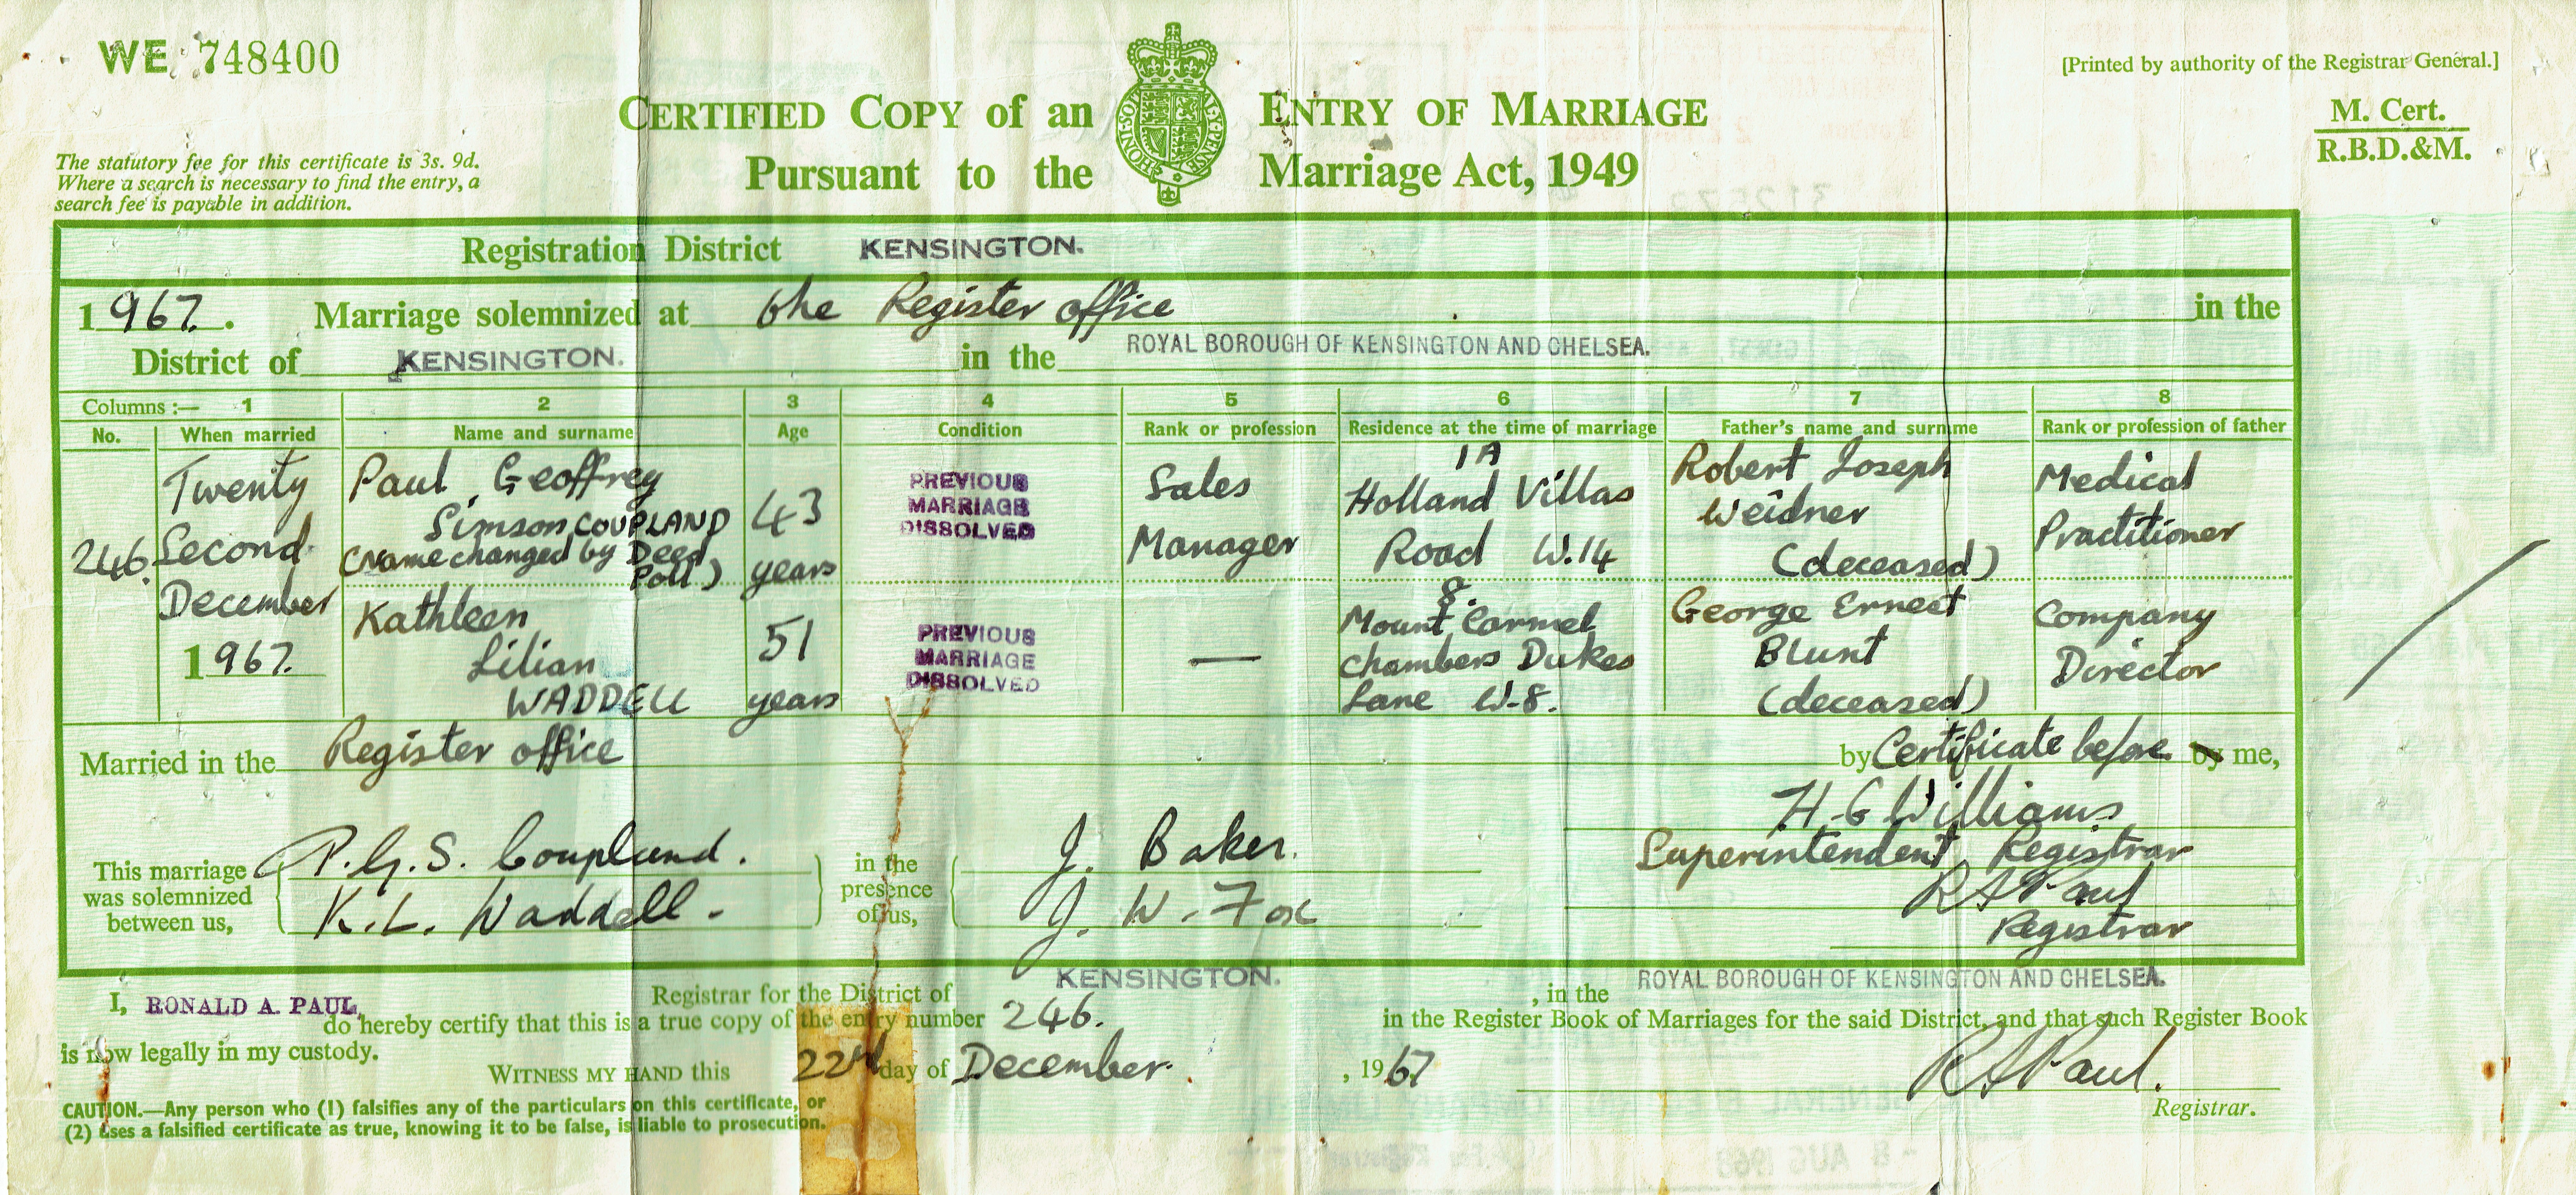 WE 748400
[Printed by authority of the Registrar General.]
CERTIFIED COPY of an ENTRY OF MARRIAGE
M. Cert.
R.B.D.&M.
Pursuant to the Marriage Act, 1949
HONI · SOIT · QUI · MAL · Y · PENSE
The statutory fee for this certificate is 3s. 9d.
Where a search is necessary to find the entry, a
search fee is payable in addition.
Registration District KENSINGTON.
1967. Marriage solemnized at the Register office in the
District of KENSINGTON. in the ROYAL BOROUGH OF KENSINGTON AND CHELSEA.
Columns :— 1 2 3 4 5 6 7 8
No. When married Name and surname Age Condition Rank or profession Residence at the time of marriage Father's name and surname Rank or profession of father
246.
Twenty
Second
December
1967.
Paul Geoffrey
Simson COUPLAND
(Name changed by Deed
Poll)
43
years
PREVIOUS
MARRIAGE
DISSOLVED
Sales
Manager
1A
Holland Villas
Road W.14
Robert Joseph
Weidner
(deceased)
Medical
Practitioner
Kathleen
Lilian
WADDELL
51
years
PREVIOUS
MARRIAGE
DISSOLVED
—
8.
Mount Carmel
Chambers Dukes
Lane W.8.
George Ernest
Blunt
(deceased)
Company
Director
Married in the Register office by Certificate before by me,
H G Williams
Superintendent Registrar
This marriage
was solemnized
between us,
P.G.S. Coupland.
K.L. Waddell.
in the
presence
of us,
J. Baker.
J. W. Fox
R A Paul
Registrar
I, RONALD A. PAUL, Registrar for the District of KENSINGTON. , in the ROYAL BOROUGH OF KENSINGTON AND CHELSEA.
do hereby certify that this is a true copy of the entry number 246. in the Register Book of Marriages for the said District, and that such Register Book
is now legally in my custody.
WITNESS MY HAND this 22nd day of December. , 1967
R A Paul.
Registrar.
CAUTION.—Any person who (1) falsifies any of the particulars on this certificate, or
(2) uses a falsified certificate as true, knowing it to be false, is liable to prosecution.